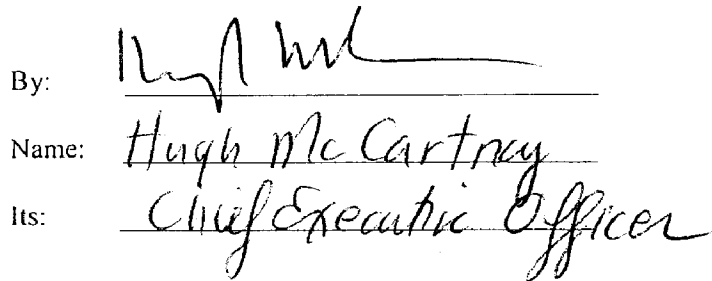 By:
Name: Hugh McCartney
Its: Chief Executive Officer